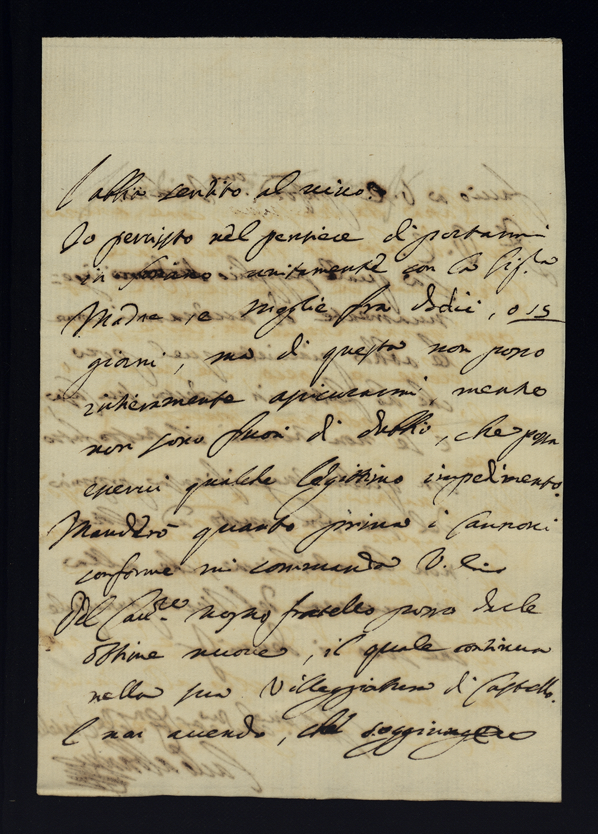 l'abbia sentito al vivo.
Io persisto nel pensiere di portarmi
in unitamente con la Sig.ra
Madre e moglie fra dodici, o 15
giorni, ma di questo non posso
intieramente assicurarmi mentre
non sono fuori di dubbio, che possa
esservi qualche legittimo impedimento.
Manderò quanto prima i Cannoni
conforme mi commanda V.
Del Cav.re nostro fratello posso darle
ottime nuove, il quale continua
nella sua Villeggiatura di Castello.
E non avendo, che soggiungere